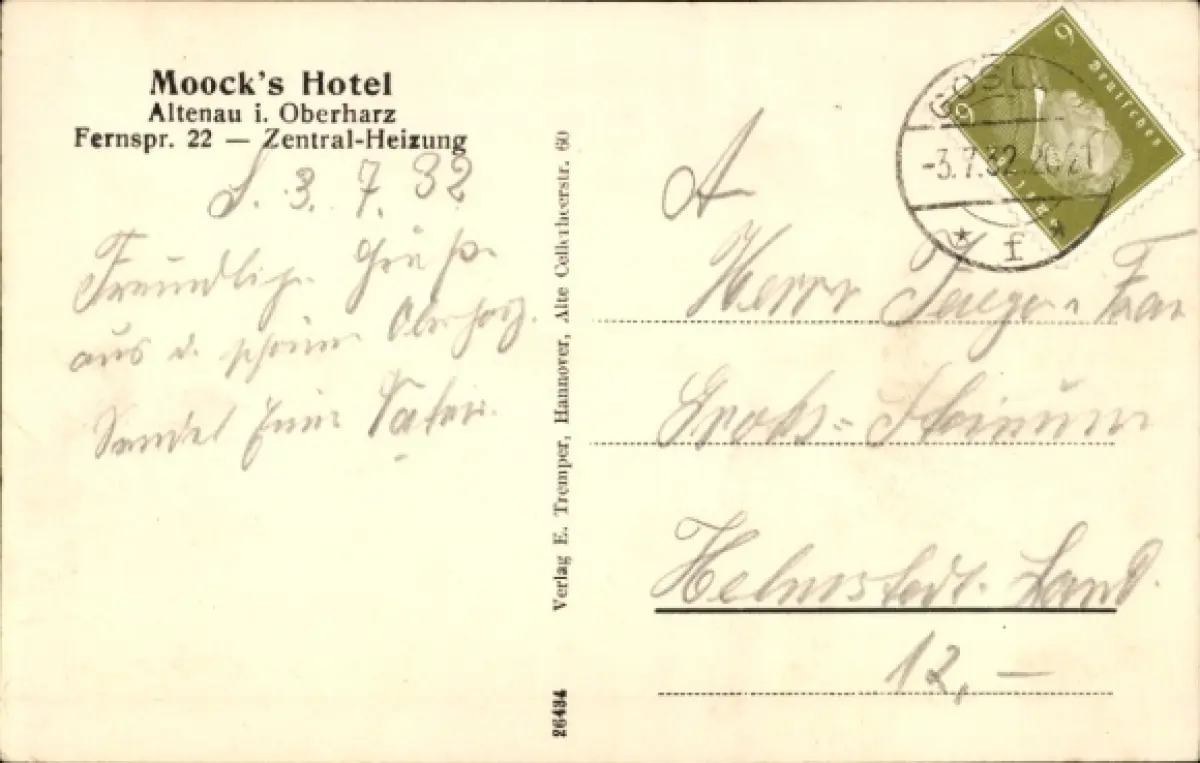 Moock's Hotel
Altenau i. Oberharz
Fernspr. 22 — Zentral-Heizung
3. 7. 32
Freundliche Grüße
aus d. schönen Oberharz.
Sendet Euer Vater.
Verlag E. Tremper, Hannover, Alte Cellerheerstr. 60
26434
GOSL
-3.7.32.20-21
* f *
6 Deutsches 6
A
Herrn u Frau
Helmstedt. Land.
12,—